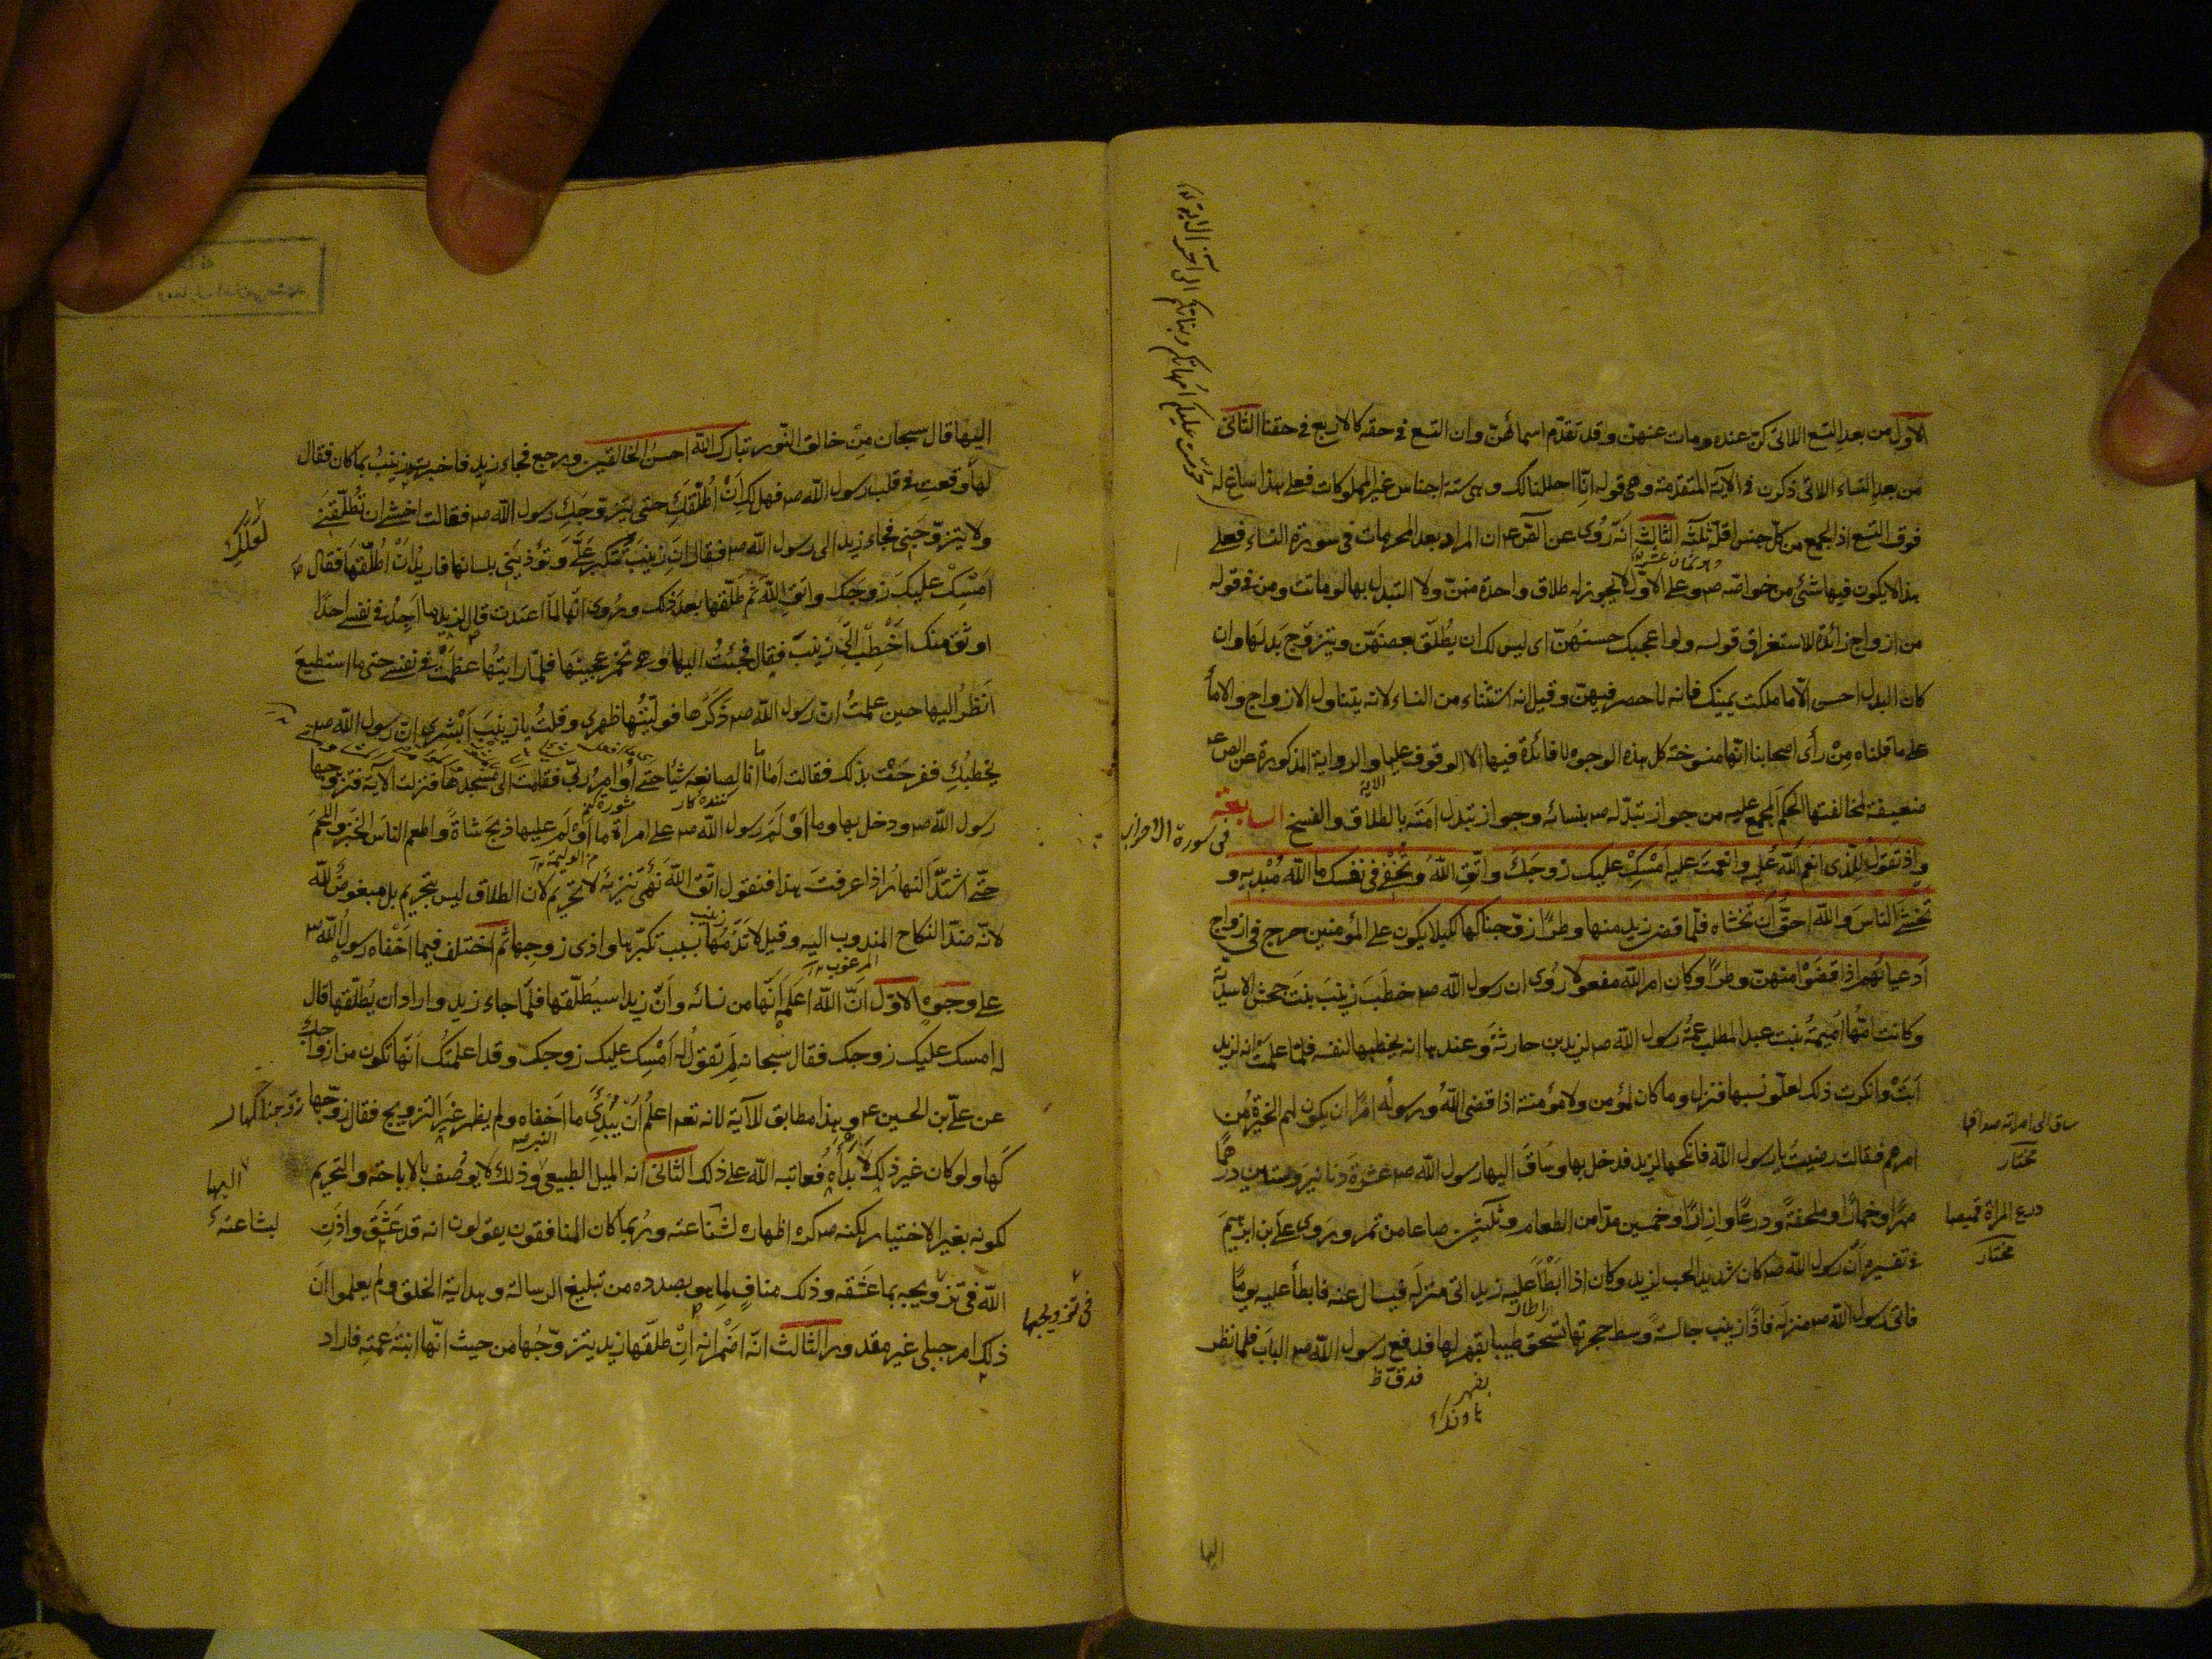 الاول من بعد التسع اللاتى كن عنده ومات عنهن وقد تقدم اسمائهن وان التسع فى حقه كالاربع فى حقنا الثانى
من بعد النساء اللاتى ذكرن فى الآية المتقدمة وهى قوله انا احللنا لك وهى ستة اجناس غير المملوكات فعلى هذا ساغ له
فوق التسع اذ الجمع من كل جنس اقله ثلثه الثالث انه روى عن الص ع ان المراد بعد المحرمات فى سورة النساء فعلى
هذا لا يكون فيها شئ من خواصه صم وعلى الاول لا يجوز له طلاق واحدة منهن ولا التبدل بها لو ماتت ومن فى قوله
من ازواج زائدة للاستغراق قوله ولو اعجبك حسنهن اى ليس لك ان يطلق بعضهن ويتزوج بدلها وان
كان البدل احسن الا ما ملكت يمينك فانه لا حصر فيهن وقيل انه استثناء من النساء لانه يتناول الازواج والاماء
على ما قلناه من رأى اصحابنا انها منسوخة كل هذه الوجوه لا فائدة فيها الا الوقوف عليها والرواية المذكورة عن الص ع
ضعيفة لمخالفتها الحكم المجمع عليه من جواز تبدله صم بنسائه وجواز تبدل امته بالطلاق والفسخ السابعة
فى سورة الاحزاب
واذ تقول للذى انعم الله عليه وانعمت عليه امسك عليك زوجك واتق الله وتخفى فى نفسك ما الله مبديه و
تخشى الناس والله احق ان تخشاه فلما قضى زيد منها وطرا زوجناكها لكيلا يكون على المؤمنين حرج فى ازواج
ادعيائهم اذا قضوا منهن وطرا وكان امر الله مفعولا روى ان رسول الله صم خطب زينب بنت جحش الاسدية
وكانت امها اميمة بنت عبد المطلب عمة رسول الله صم لزيد بن حارثة وعندها انه يخطبها لنفسه فلما علمت انه لزيد
ابت وانكرت ذلك لعلو نسبها فنزل وما كان لمؤمن ولا مؤمنة اذا قضى الله ورسوله امرا ان يكون لهم الخيرة من
امرهم فقالت رضيت يا رسول الله فانكحها لزيد فدخل بها وساق اليها رسول الله صم عشرة دنانير وستين درهما
مهرا وخمارا وملحفة ودرعا وازارا وخمسين مدا من الطعام وثلثين صاعا من تمر وروى على بن ابرهيم
فى تفسيره ان رسول الله صم كان شديد الحب لزيد وكان اذا ابطأ عليه زيد اتى منزله فيسأل عنه فابطأ عليه يوما
فاتى رسول الله صم منزله فاذا زينب جالسة وسط حجرتها تسحق طيبا بفهر لها فدفع رسول الله صم الباب فلما نظر
فدق ظ
بفهر
حرمت عليكم امهاتكم وبناتكم الى آخر الآية
ساق الى امراته صداقها
مختار
درع المرأة قميصها
مختار
اليها
اليها قال سبحان من خالق النور تبارك الله احسن الخالقين ورجع فجاء زيد فاخبرته زينب بما كان فقال
لها وقعت فى قلب رسول الله صم فهل لك ان اطلقك حتى يتزوجك رسول الله صم فقالت اخشى ان تطلقنى
ولا يتزوجنى فجاء زيد الى رسول الله صم فقال ان زينب تتكبر على وتؤذينى بلسانها فاريد ان اطلقها فقال
امسك عليك زوجك واتق الله ثم طلقها بعد ذلك وروى انها لما اعتدت قال لزيد ما اجد فى نفسى احدا
اوثق منك اخطب الى زينب فقال فجئت اليها وهى تخمر عجينها فلما رايتها عظمت فى نفسى حتى ما استطيع
انظر اليها حين علمت ان رسول الله صم ذكرها فوليتها ظهرى وقلت يا زينب ابشرى ان رسول الله صم
يخطبك ففرحت بذلك فقالت اما انا لصانعه شيئا حتى اوامر ربى فقامت الى مسجدها فنزلت الآية فتزوجها
رسول الله صم ودخل بها وما اولم رسول الله صم على امراة ما اولم عليها ذبح شاة واطعم الناس الخبز واللحم
حتى اشتد النهار اذا عرفت هذا فنقول اتق الله نهى تنزيه لا تحريم لان الطلاق ليس بتحريم بل مبغوض لله
لانه ضد النكاح المندوب اليه وقيل لا تذمها بسبب تكبرها واذى زوجها ثم اختلف فيما اخفاه رسول الله صم
على وجوه الاول ان الله اعلمه انها من نسائه وان زيدا سيطلقها فلما جاء زيد واراد ان يطلقها قال
له امسك عليك زوجك فقال سبحانه لم تقول له امسك عليك زوجك وقد اعلمتك انها تكون من ازواجك
عن على بن الحسين ع وهذا مطابق للآية لانه تعه اعلم ان يبدى ما اخفاه ولم يظهر غير التزويج فقال زوجناكها
كها ولو كان غير ذلك لابداه فعاتبه الله على ذلك الثانى انه الميل الطبيعى وذلك لا يوصف بالاباحة والتحريم
لكونه بغير الاختيار لكنه صم كره اظهاره لشناعته وربما كان المنافقون يقولون انه قد عشق واذن
الله فى تزويجه بما عشقه وذلك مناف لما هو بصدده من تبليغ الرسالة وهداية الخلق ولم يعلموا ان
ذلك امر جبلى غير مقدور الثالث انه اضمر انه ان طلقها زيد يتزوجها من حيث انها ابنة عمته فاراد
فى تزويجها
اليها
لبشاعته